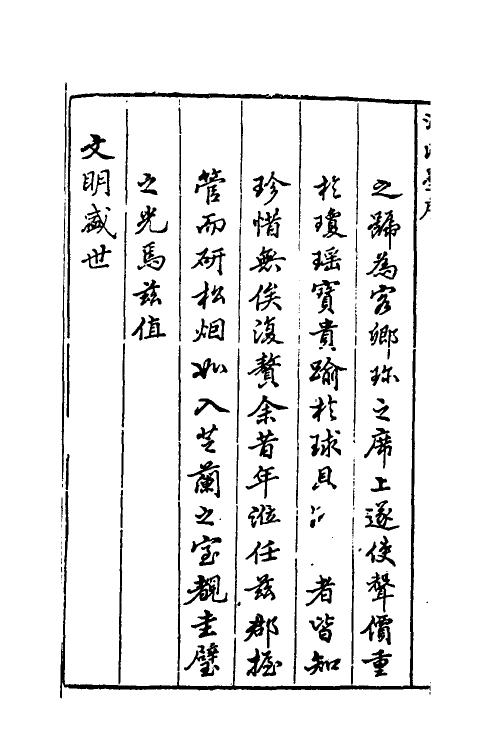 之歸為客卿珎之席上遂使聲價重
扵瓊瑶寶貴踰扵球貝 者皆知
珍惜無俟復贅余昔年涖任兹郡握
管而研松烟如入芝蘭之室覩圭璧
之光焉兹值
文明盛世